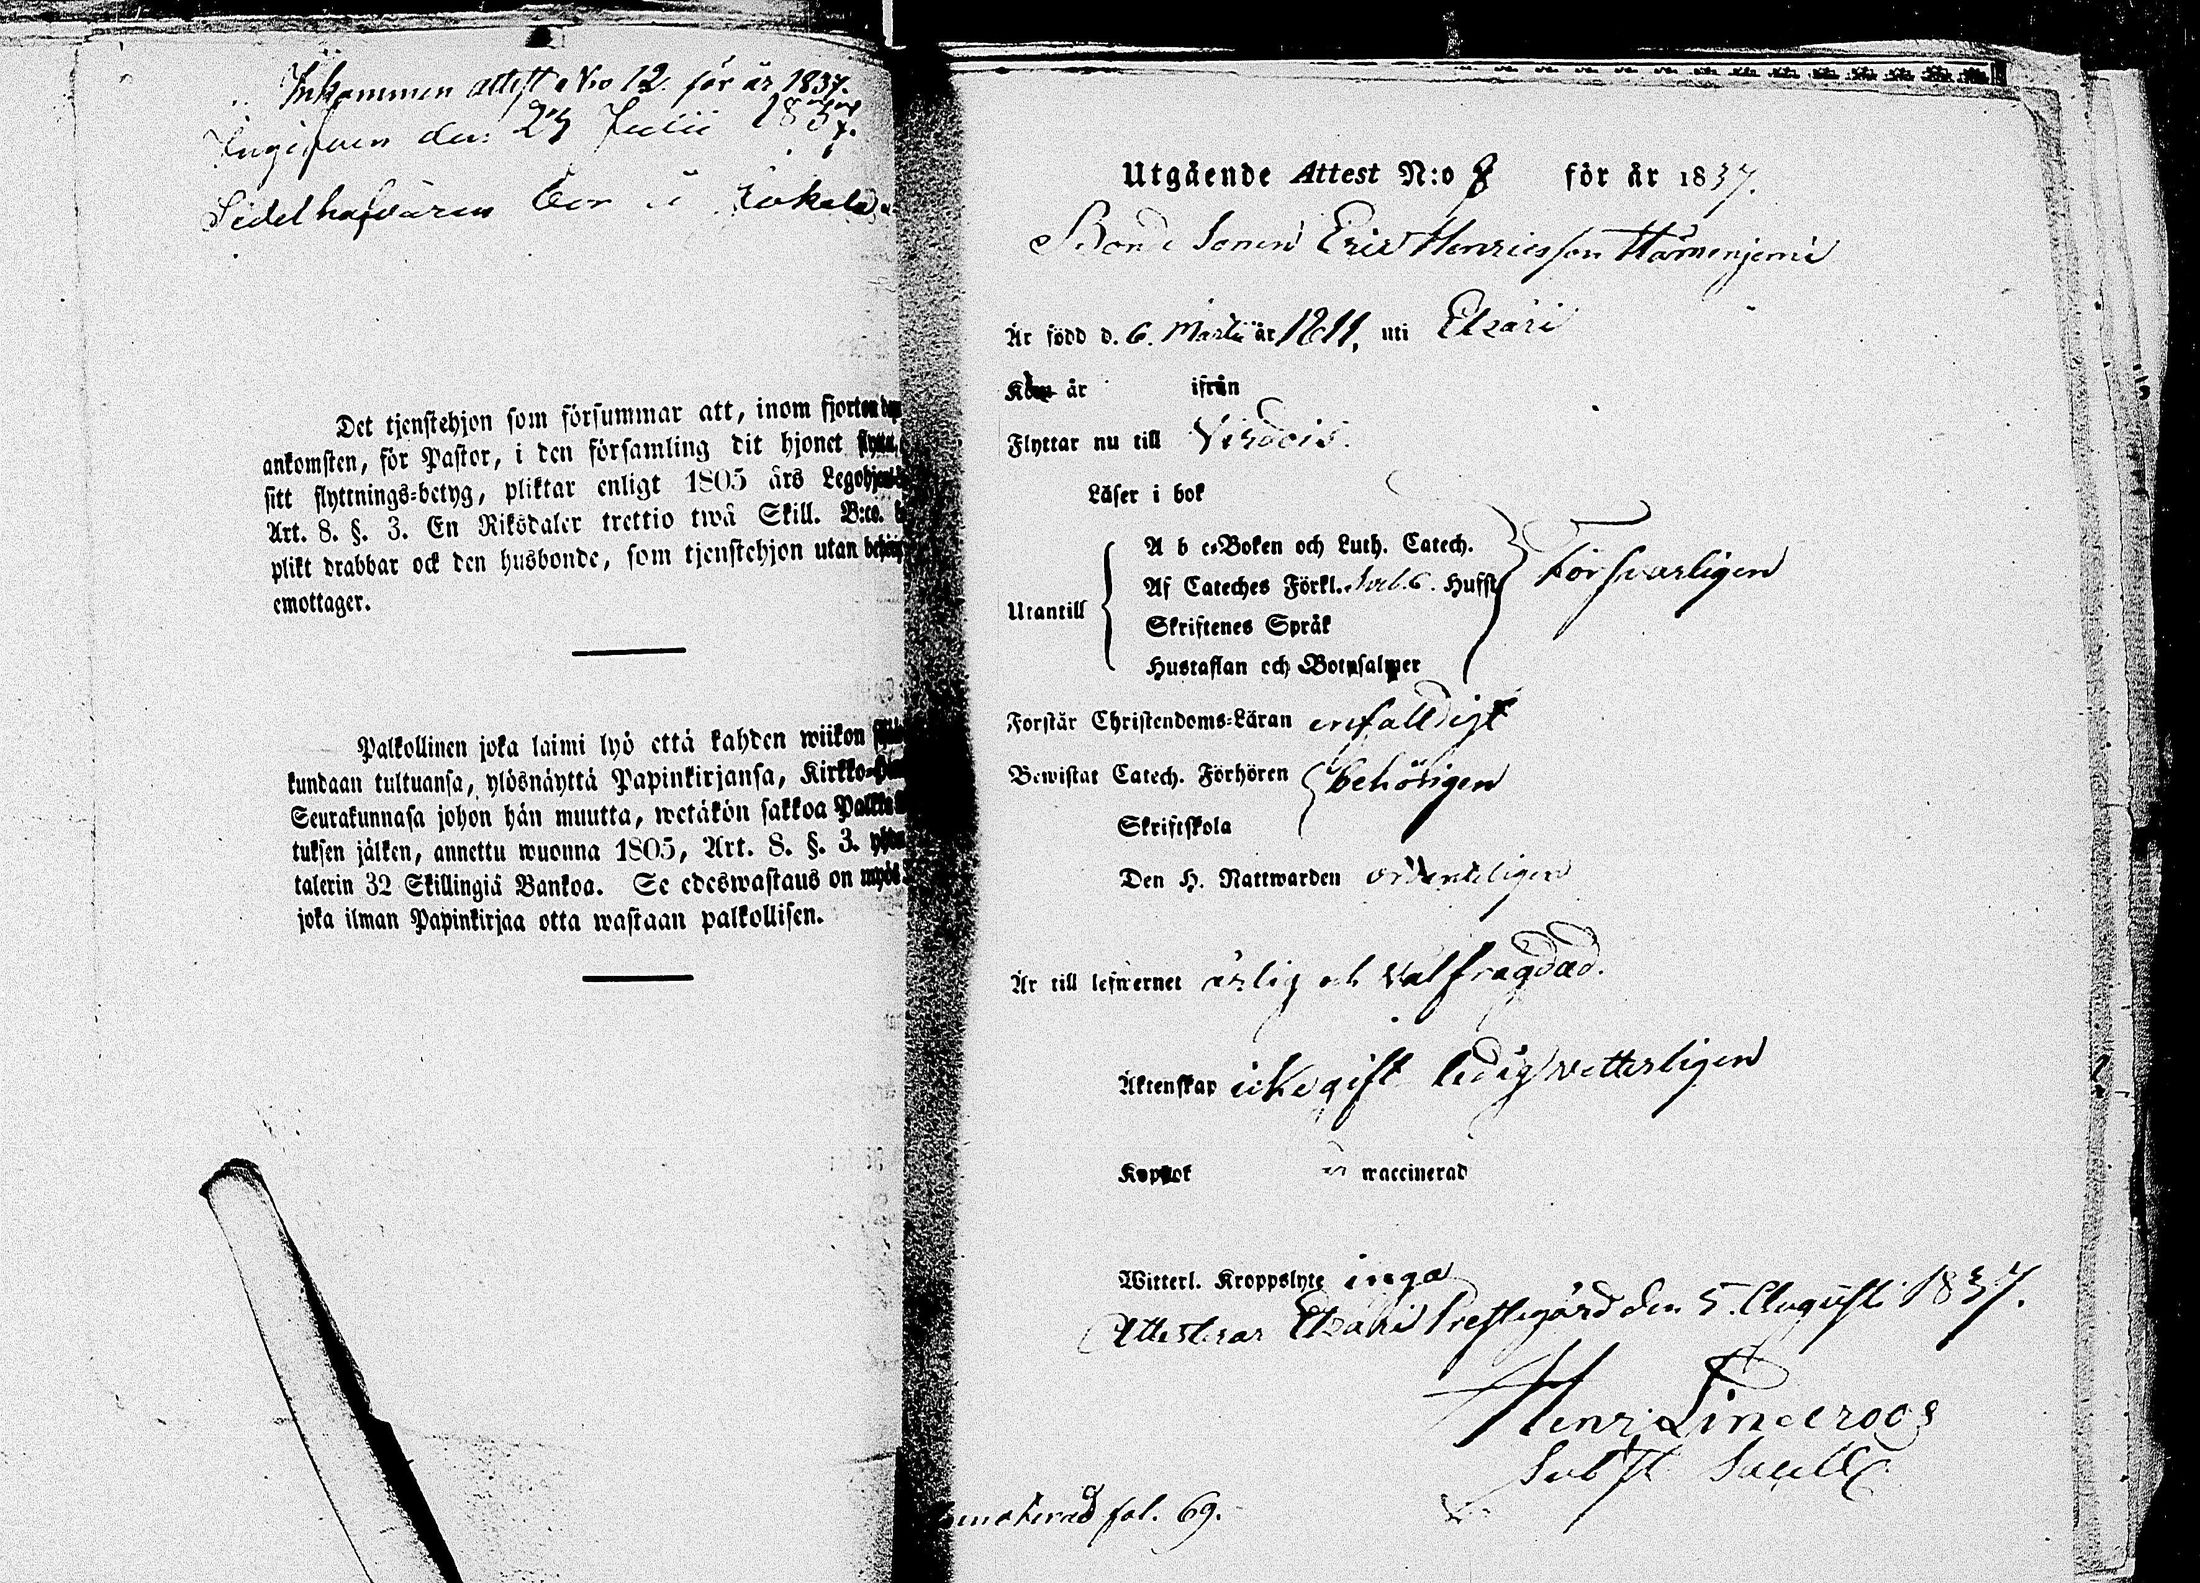 Inkommen attest No 12. för år 1837.
Ingifven den 29 Julii 1837.
Det tjenstehjon som försummar att, inom fjorton
ankomsten, för Pastor, i den församling dit hjonet
sitt flyttnings-betyg, pliktar enligt 1805 års
Art. 8. §. 3. En Riksdaler trettio twå Skill. B:co.
plikt drabbar ock den husbonde, som tjenstehjon utan
emottager.
Palkollinen joka laimi lyö että kahden wiikon
kundaan tultuansa, ylösnäyttä Papinkirjansa,
Seurakunnasa johon hän muutta, wetäkön sakkoa
tuksen jälken, annettu wuonna 1805, Art. 8. §. 3.
talerin 32 Skillingiä Bankoa. Se edeswastaus on
joka ilman Papinkirjaa otta wastaan palkollisen.
Utgående Attest N:o 8 för år 1837.
Bonde Sonen Eric Henricsson
Är född d. 6. Martii år 1811, uti Etzäri
Kom år ifrån
Flyttar nu till Virdois.
Läser i bok
A b c-Boken och Luth. Catech.
Af Cateches Förkl. Hufst
Utantill Försvarligen
Skriftenes Språk
Hustaflan och Botpsalmer
Forstår Christendoms-Läran enfalldigt
Bewistat Catech. Förhören behörigen
Skriftskola
Den H. Nattwarden ordenteligen
Är till lefwernet ärlig och välfrägdad.
Äktenskap icke gift ledig vetterligen
Koppok är waccinerad
Witterl. Kroppslyte inga
Attesterar Etzäri Prestegård den 5. Augusti 1837.
Henr. Linderoos
fol. 69.